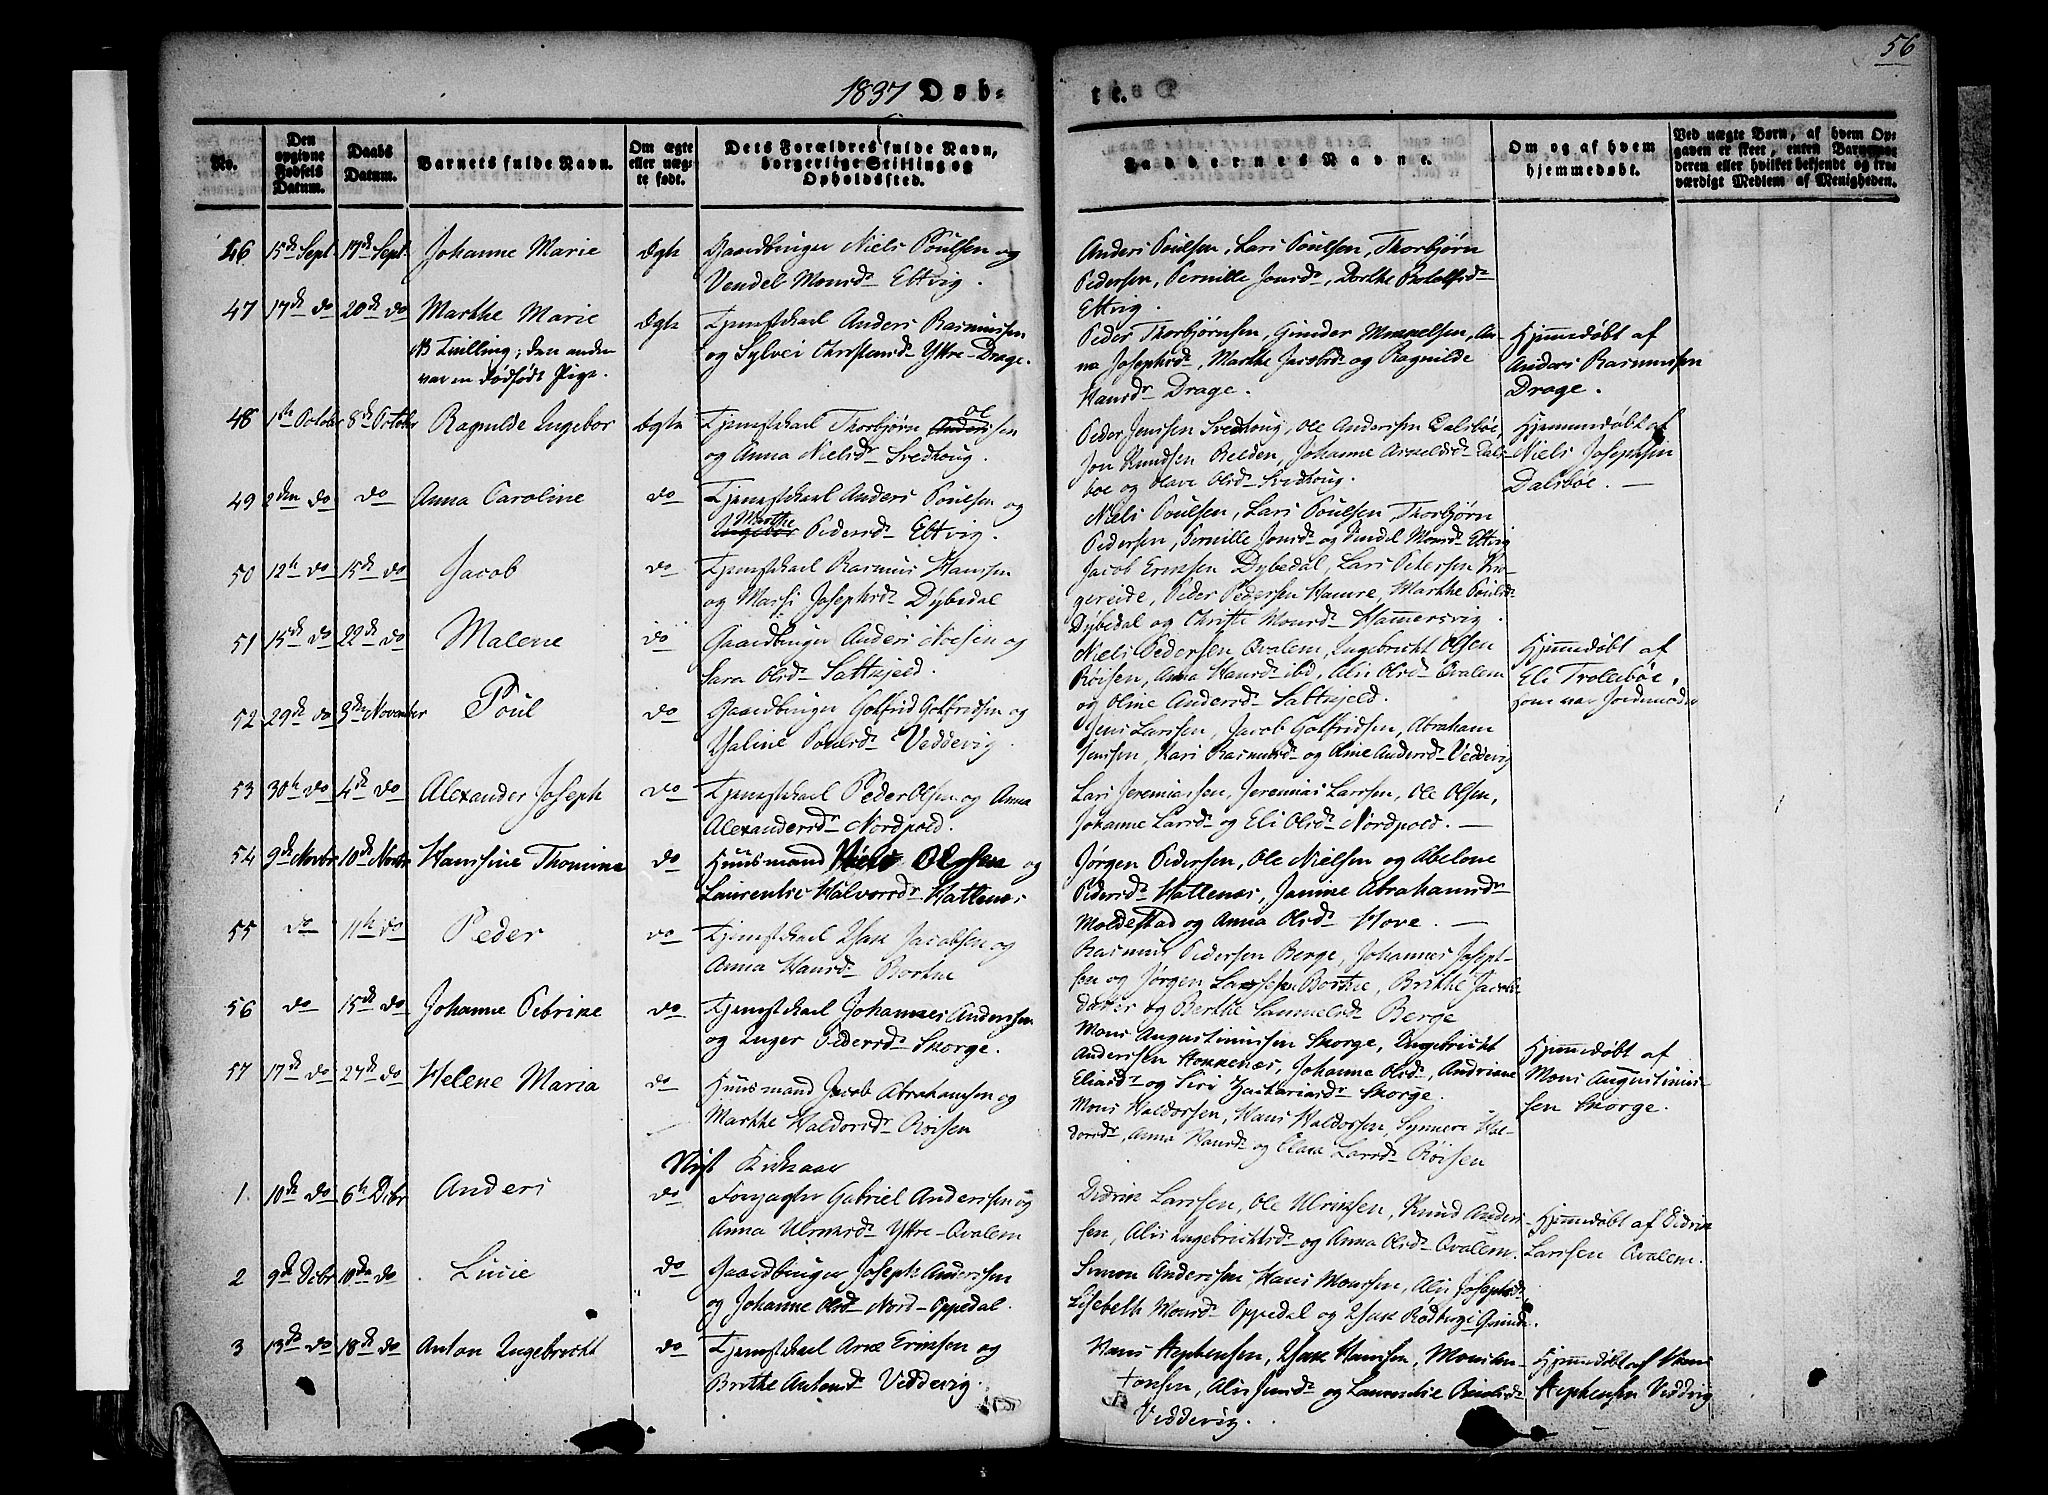 56
1837 Døb-
te.
No.
Den opgivne Fødsels Datum.
Daabs Datum.
Barnets fulde Navn.
Om ægte eller uægte født.
Dets Forældres fulde Navn, borgerlige Stilling og Opholdssted.
Fadbernes Navne.
Om og af hvem hjemmedøbt.
Ved uægte Børn, af hvem Opgaven er skeet, enten Barnemoderen eller hvilket bekjendt og troværdigt Medlem af Menigheden.
46 15de Sept 17de Sept. Johanne Marie Ægte Gaardbruger Niels Poulsen og
Vendel Monsdr Eltvig.
Anders Poulsen, Lars Poulsen, Thorbjørn
Pedersen, Pernille Jonsdr, Dorthe
Eltvig
47 17de do 20de do Marthe Marie Ægte Tjenestekarl Anders Rasmussen
NB Tvilling; den anden
var en dødfødt Pige.
og Sylvei Christensdr Yttre-Drage.
Peder Thorbjørnsen, Gunder An-
na Josephsdr, Marthe Jacobsdr og Ragnilde
Hansdr Drage.
Hjemmedøbt af
Anders Rasmussen
Drage.
48 1ste October 8de October Ragnilde Ingebor Ægte Tjenestekarl Thorbjørn
og Anna Nielsdr Svedhoug.
Peder Jenssen Svedhoug, Ole Andersen Dalsbøe,
Jon Knudsen Relden, Johanne Arneldsdr Dals-
boe og Olave Olsdr Svedhoug.
Hjemmedøbt af
Niels Josephsen
Dalsbøe.
49 2den do do Anna Caroline do Tjenestekarl Anders Poulsen og
Marthe Pedersdr Eltvig.
Niels Poulsen, Lars Poulsen, Thorbjørn
Pedersen, Pernille Jonsdr og Vendel Monsdr Eltvig
50 12te do 15de do Jacob do Tjenestekarl Rasmus Hanssen
og Marsi Josephsdr Dybedal
Jacob Eriksen Dybedal, Lars Petersen Kro-
gereide, Peder Pedersen Hamre, Marthe Poulsdr
Dybedal og Christi Monsdr Hamersvig.
51 15de do 22de do Malene do Gaardbruger Anders Moesen og
Sara Olsdr Sattkjeld.
Niels Pedersen Qvalem, Ingebricht Olsen
Røisen, Anna Hansdr ibd, Alis Olsdr Qvalem
og Oline Andersdr Sattkjeld.
Hjemmedøbt af
Eli Trollebøe,
som var Jordemoder
52 29de do 3die November Poul do Gaardbruger Gotfrid Gotfridsen og
Maline Poulsdr Veddevig.
Jens Larssen, Jacob Gotfridsen, Abraham
Jenssen, Kari Rasmusdr og Oline Andersdr Veddevig
53 30te do 4de do Alexander Joseph do Tjenestekarl Peder Olsen og Anna
Alexandersdr Nordpold.
Lars Jeremiassen, Jeremias Larssen, Ole Olsen,
Johanne Larsdr og Eli Olsdr Nordpold.
54 9de Novbr 10de Novbr Hanssine Thomine do Huusmand Niels Olssen og
Laurentse Halvorsdr Hattenæs
Jørgen Pedersen, Ole Nielsen og Abelone
Pedersdr Hattenæs, Janine Abrahamsdr
Moldestad og Anna Olsdr Hove.
55 do 11te do Peder do Tjenestekarl Isak Jacobsen og
Anna Hansdr Borthe
Rasmus Pedersen Berge, Johannes Joseph-
sen og Jørgen Larssen Borthe, Brithe Jacobs-
datter og Berthe Samuelsdr Berge
56 do 15de do Johanne Petrine do Tjenestekarl Johannes Anderssen
og Inger Pedersdr Skorge.
Mons Augustinussen Skorge, Ingebricht
Anderssen Hornenæs, Johanne Olsdr, Andriane
Eliasdr og Siri Zachariasdr Skorge.
Hjemmedøbt af
Mons Augustinus-
sen Skorge.
57 17de do 27de do Helene Maria do Huusmand Jacob Abrahamsen og
Marthe Haldorsdr Røisen
Mons Haldorsen, Hans Haldorsen, Synneve Hal-
dorsdr, Anna Hansdr og Elana Larsdr Røisen
Nyt Kirkeaar
1. 10de do 6te Debr Anders do Forpagter Gabriel Anderssen og
Anna Ulriksdr Yttre-Qvalem
Didrik Larssen, Ole Ulriksen, Knud Anders-
sen, Alis Ingebrichtsdr og Anna Olsdr Qvalem.
Hjemmedøbt af Didrik
Larssen Qvalem.
2 9de Debr 10de do Lucie do Gaardbruger Joseph Anderssen
og Johanne Olsdr Nord-Oppedal.
Symon Anderssen, Hans Monssen, Alis Josephsdr,
Lisebeth Monsdr Oppedal og Isak Rodberge Grinde.
3 13de do 18de do Anton Ingebricht do Tjenestekarl Arne Eriksen og
Brithe Antonsdr Veddevig.
Hans Stephensen, Isak Hanssen, Mons An-
tonsen, Alis Jensdr og Laurentse
Veddevig.
Hjemmedøbt af Hans
Stephensen Veddvig